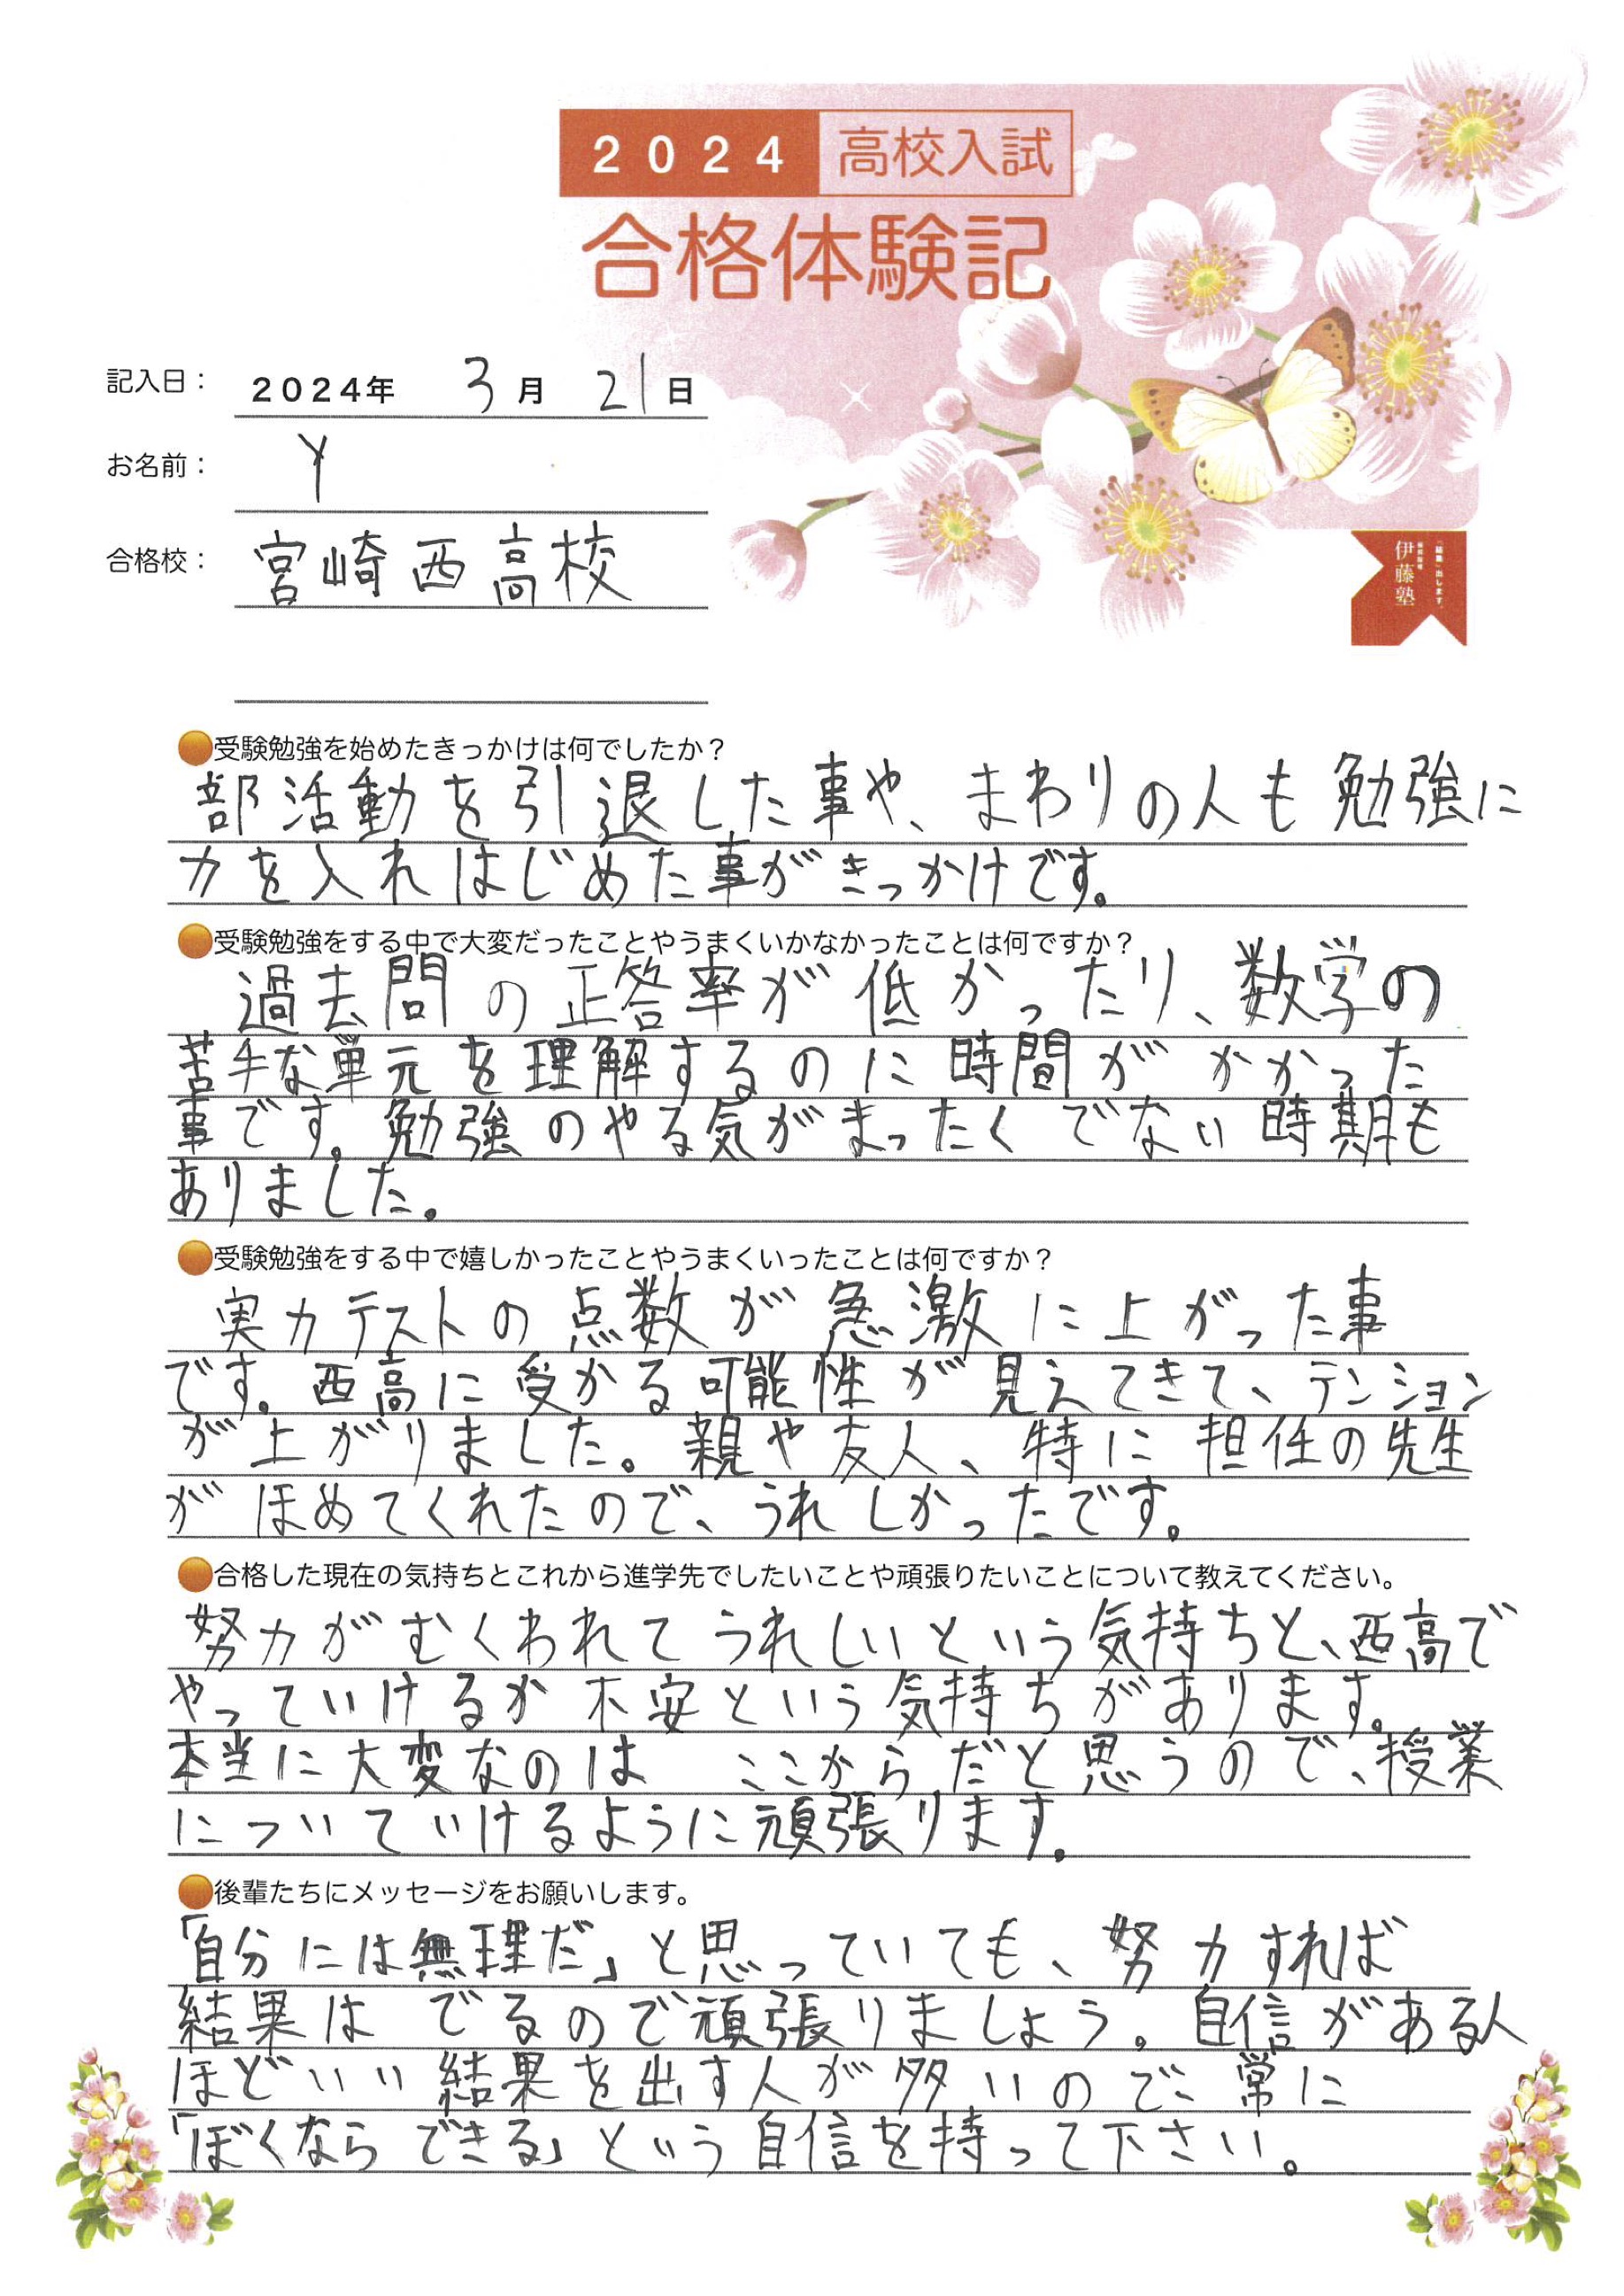 2024 高校入試
合格体験記
記入日： 2024年 3月 21日
お名前： Y
合格校： 宮崎西高校
「結果」出します。
伊藤塾
●受験勉強を始めたきっかけは何でしたか？
部活動を引退した事や、まわりの人も勉強に
力を入れはじめた事がきっかけです。
●受験勉強をする中で大変だったことやうまくいかなかったことは何ですか？
過去問の正答率が低かったり、数学の
苦手な単元を理解するのに時間がかかった
事です。勉強のやる気がまったくでない時期も
ありました。
●受験勉強をする中で嬉しかったことやうまくいったことは何ですか？
実力テストの点数が急激に上がった事
です。西高に受かる可能性が見えてきて、テンション
が上がりました。親や友人、特に担任の先生
がほめてくれたので、うれしかったです。
●合格した現在の気持ちとこれから進学先でしたいことや頑張りたいことについて教えてください。
努力がむくわれてうれしいという気持ちと、西高で
やっていけるか不安という気持ちがあります。
本当に大変なのは ここからだと思うので、授業
についていけるように頑張ります。
●後輩たちにメッセージをお願いします。
「自分には無理だ」と思っていても、努力すれば
結果はでるので頑張りましょう。自信がある人
ほどいい結果を出す人が多いので、常に
「ぼくならできる」という自信を持って下さい。